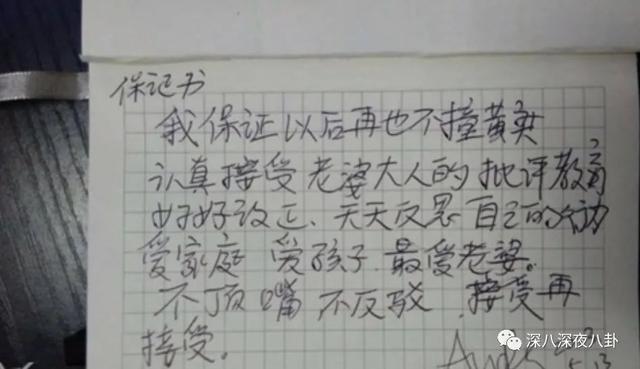 保证书
我保证以后再也不撞黄奕
认真接受老婆大人的批评教育
好好改正、天天反思自己的
爱家庭 爱孩子.最爱老婆。
不顶嘴 不反驳.接受再
接受。
深八深夜八卦